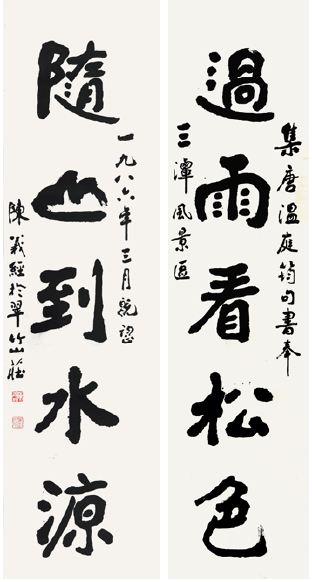 集唐溫庭筠句書奉
過雨看松色
三潭風景區
一九八六年三月
隨山到水源
陳義經於翠竹山莊